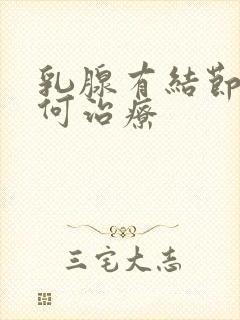 乳腺有結節
何治療
三宅大志